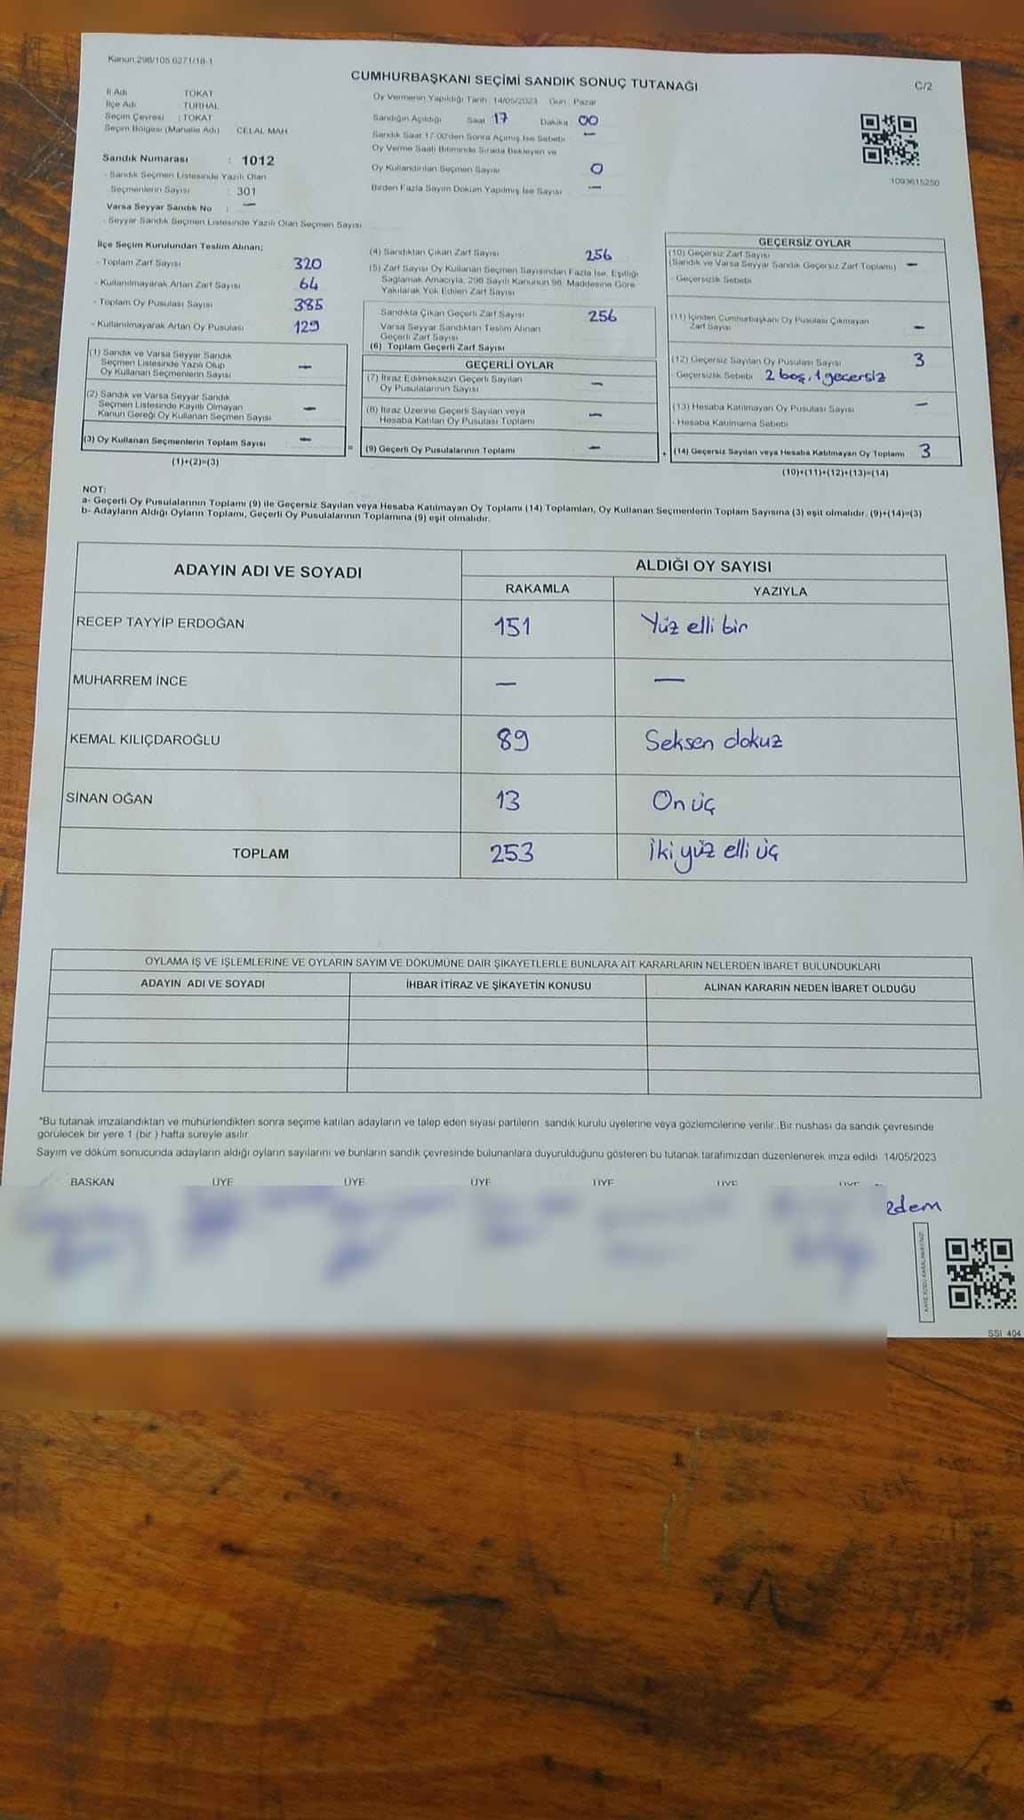 Kanun 298/105 6271/18-1
CUMHURBAŞKANI SEÇİMİ SANDIK SONUÇ TUTANAĞI
C/2
İl Adı TOKAT
İlçe Adı TURHAL
Seçim Çevresi : TOKAT
Seçim Bölgesi (Mahalle Adı) CELAL MAH.
Sandık Numarası : 1012
- Sandık Seçmen Listesinde Yazılı Olan
Seçmenlerin Sayısı : 301
Varsa Seyyar Sandık No : —
- Seyyar Sandık Seçmen Listesinde Yazılı Olan Seçmen Sayısı
Oy Vermenin Yapıldığı Tarih : 14/05/2023 Gün : Pazar
Sandığın Açıldığı Saat 17 Dakika 00
Sandık Saat 17:00'den Sonra Açılmış İse Sebebi —
Oy Verme Saati Bitiminde Sırada Bekleyen ve
Oy Kullandırılan Seçmen Sayısı 0
Birden Fazla Sayım Döküm Yapılmış İse Sayısı —
1093615250
İlçe Seçim Kurulundan Teslim Alınan;
- Toplam Zarf Sayısı 320
- Kullanılmayarak Artan Zarf Sayısı 64
- Toplam Oy Pusulası Sayısı 385
- Kullanılmayarak Artan Oy Pusulası 129
(1) Sandık ve Varsa Seyyar Sandık
Seçmen Listesinde Yazılı Olup
Oy Kullanan Seçmenlerin Sayısı —
(2) Sandık ve Varsa Seyyar Sandık
Seçmen Listesinde Kayıtlı Olmayan
Kanun Gereği Oy Kullanan Seçmen Sayısı —
(3) Oy Kullanan Seçmenlerin Toplam Sayısı —
(1)+(2)=(3)
(4) Sandıktan Çıkan Zarf Sayısı 256
(5) Zarf Sayısı Oy Kullanan Seçmen Sayısından Fazla İse, Eşitliği
Sağlamak Amacıyla, 298 Sayılı Kanunun 98. Maddesine Göre
Yakılarak Yok Edilen Zarf Sayısı
Sandıkta Çıkan Geçerli Zarf Sayısı 256
Varsa Seyyar Sandıktan Teslim Alınan
Geçerli Zarf Sayısı
(6) Toplam Geçerli Zarf Sayısı
GEÇERLİ OYLAR
(7) İtiraz Edilmeksizin Geçerli Sayılan
Oy Pusulalarının Sayısı —
(8) İtiraz Üzerine Geçerli Sayılan veya
Hesaba Katılan Oy Pusulası Toplamı —
= (9) Geçerli Oy Pusulalarının Toplamı —
GEÇERSİZ OYLAR
(10) Geçersiz Zarf Sayısı
(Sandık ve Varsa Seyyar Sandık Geçersiz Zarf Toplamı) —
- Geçersizlik Sebebi
(11) İçinden Cumhurbaşkanı Oy Pusulası Çıkmayan
Zarf Sayısı —
(12) Geçersiz Sayılan Oy Pusulası Sayısı 3
- Geçersizlik Sebebi 2 boş, 1 geçersiz
(13) Hesaba Katılmayan Oy Pusulası Sayısı —
- Hesaba Katılmama Sebebi
+ (14) Geçersiz Sayılan veya Hesaba Katılmayan Oy Toplamı 3
(10)+(11)+(12)+(13)=(14)
NOT:
a- Geçerli Oy Pusulalarının Toplamı (9) ile Geçersiz Sayılan veya Hesaba Katılmayan Oy Toplamı (14) Toplamları, Oy Kullanan Seçmenlerin Toplam Sayısına (3) eşit olmalıdır. (9)+(14)=(3)
b- Adayların Aldığı Oyların Toplamı, Geçerli Oy Pusulalarının Toplamına (9) eşit olmalıdır.
ADAYIN ADI VE SOYADI
ALDIĞI OY SAYISI
RAKAMLA YAZIYLA
RECEP TAYYİP ERDOĞAN 151 Yüz elli bir
MUHARREM İNCE — —
KEMAL KILIÇDAROĞLU 89 Seksen dokuz
SİNAN OĞAN 13 On üç
TOPLAM 253 İki yüz elli üç
OYLAMA İŞ VE İŞLEMLERİNE VE OYLARIN SAYIM VE DÖKÜMÜNE DAİR ŞİKAYETLERLE BUNLARA AİT KARARLARIN NELERDEN İBARET BULUNDUKLARI
ADAYIN ADI VE SOYADI İHBAR İTİRAZ VE ŞİKAYETİN KONUSU ALINAN KARARIN NEDEN İBARET OLDUĞU
*Bu tutanak imzalandıktan ve mühürlendikten sonra seçime katılan adayların ve talep eden siyasi partilerin sandık kurulu üyelerine veya gözlemcilerine verilir. Bir nushası da sandık çevresinde
görülecek bir yere 1 (bir ) hafta süreyle asılır.
Sayım ve döküm sonucunda adayların aldığı oyların sayılarını ve bunların sandık çevresinde bulunanlara duyurulduğunu gösteren bu tutanak tarafımızdan düzenlenerek imza edildi. 14/05/2023
BAŞKAN ÜYE ÜYE ÜYE ÜYE ÜYE ÜYE
SSİ 404